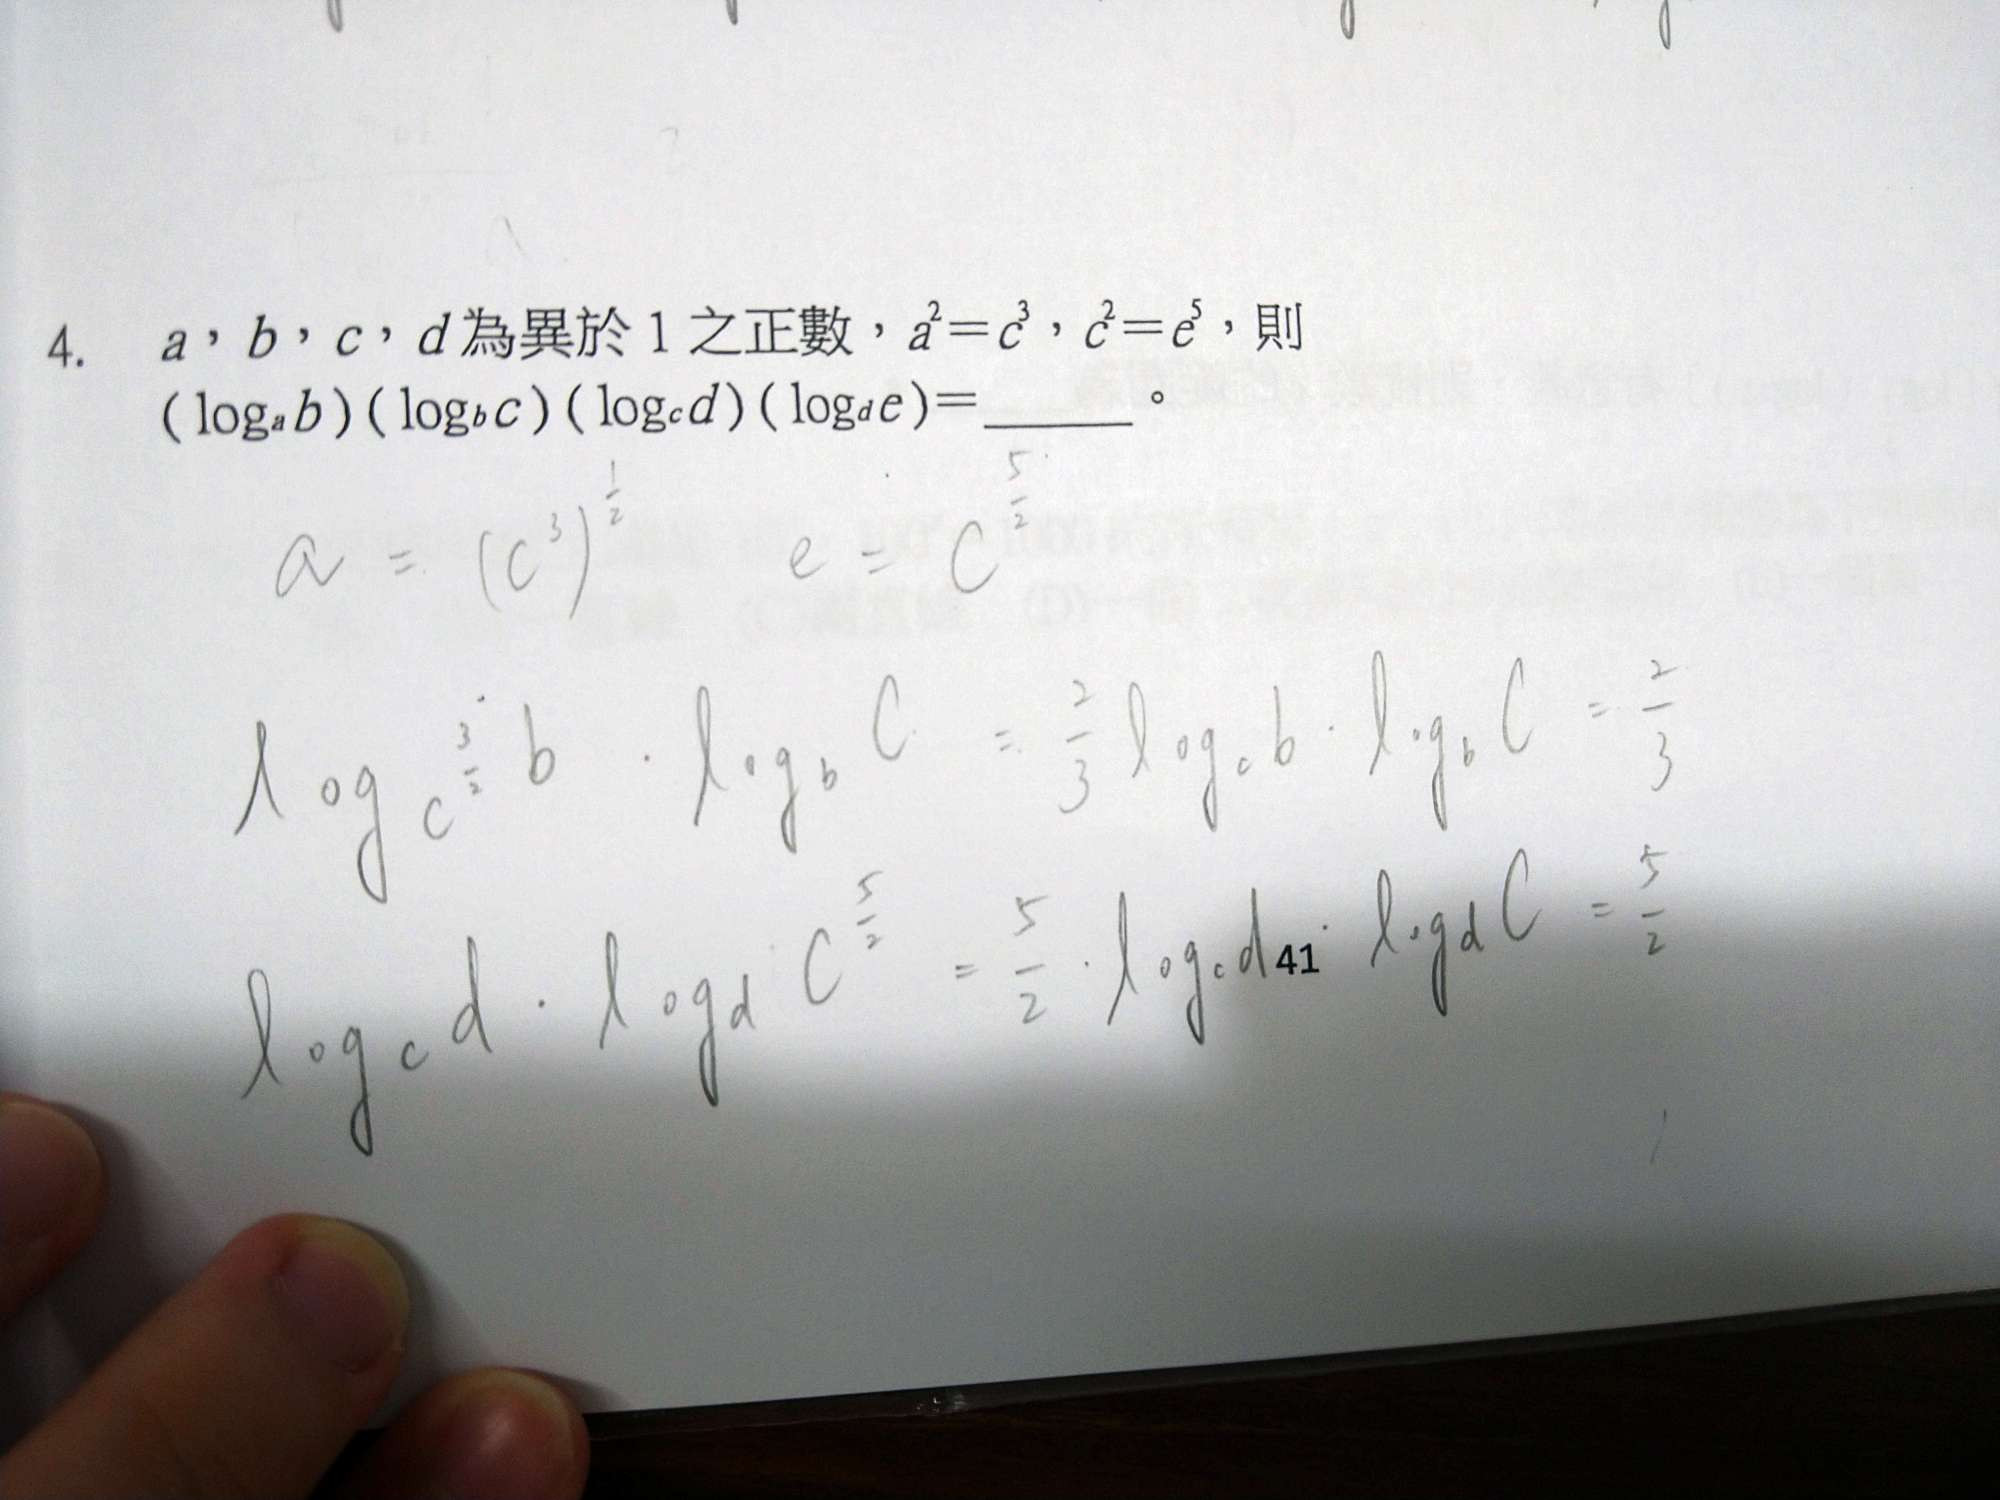 4. a，b，c，d為異於 1 之正數，a²=c³，c²=e⁵，則
(logₐb)(log_b c)(log_c d)(log_d e)=______。
a = (c³)^(1/2) e = c^(5/2)
log_(c^(3/2)) b · log_b c = 2/3 log_c b · log_b c = 2/3
log_c d · log_d c^(5/2) = 5/2 · log_c d · log_d c = 5/2
41